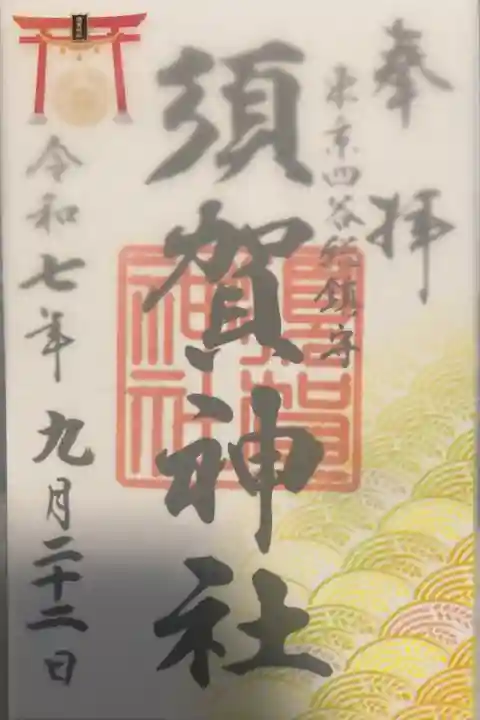 奉拝
東京四谷総鎮守
須賀神社
須賀神社
令和七年 九月二十二日